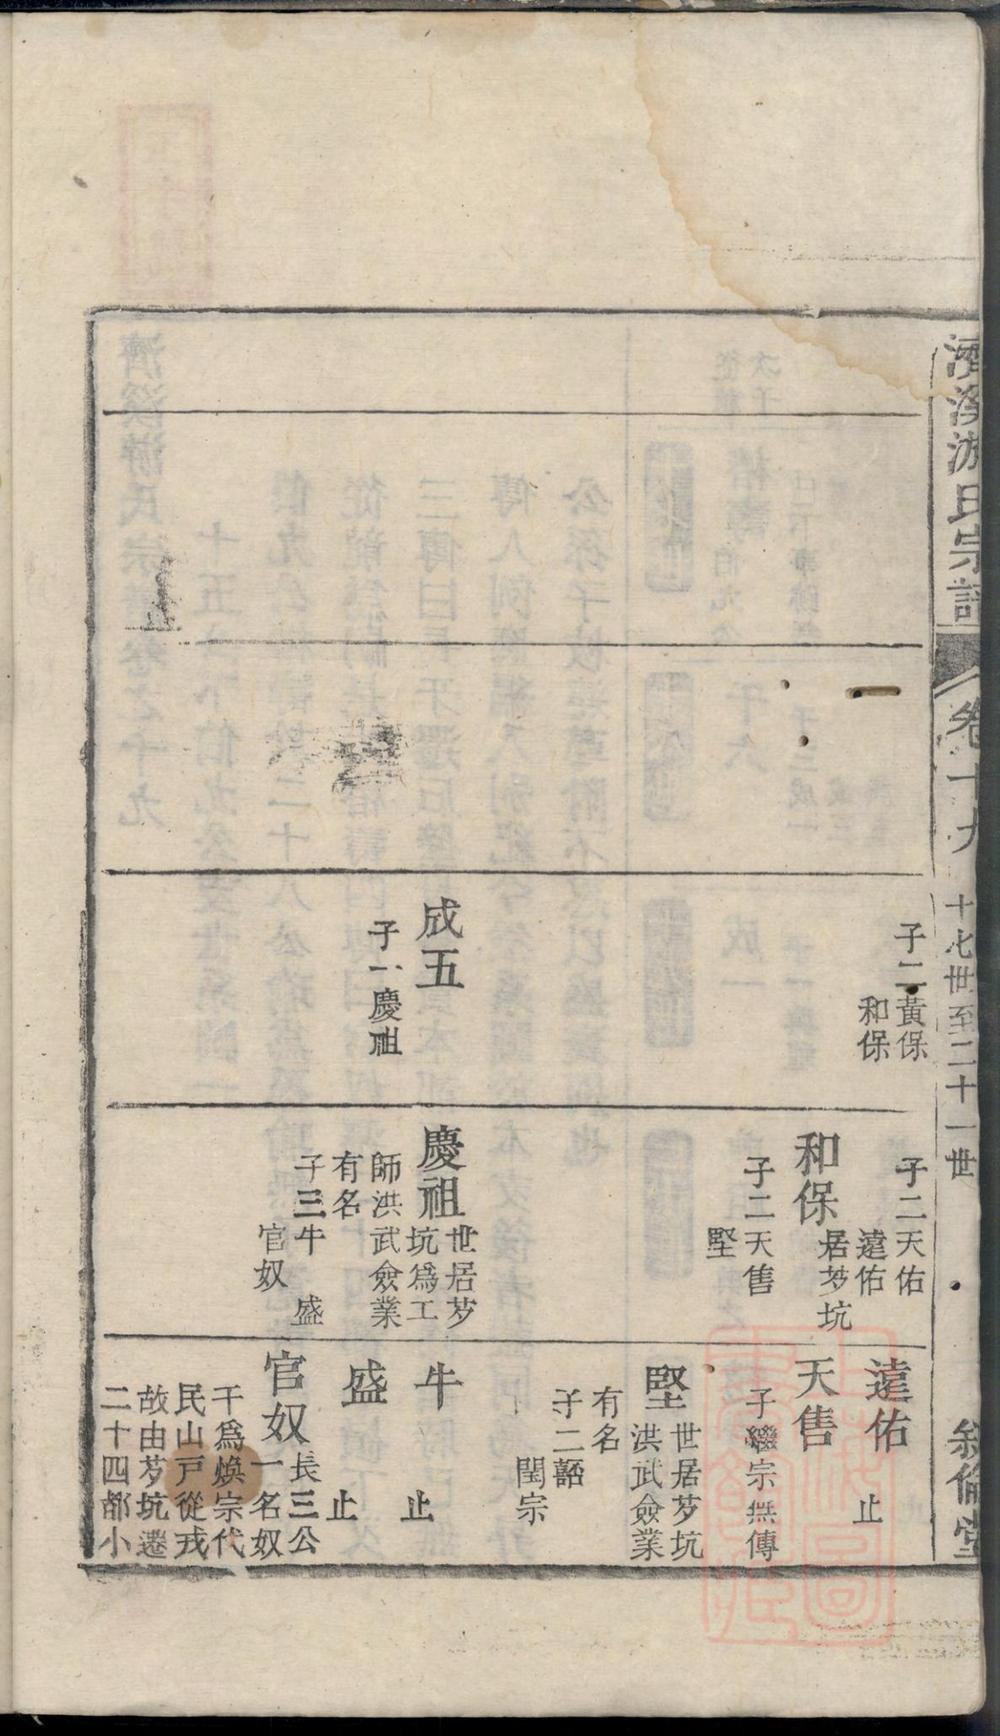 濟溪游氏宗譜
卷十九
十七世至二十一世
敘倫堂
子二黃保
和保
成五
子一慶祖
子二天佑
遠佑
和保
居芗坑
子二天售
堅
慶祖
世居芗
坑爲工
師洪武僉業
有名
子三牛
盛
官奴
遠佑
止
天售
子繼宗無傳
堅
世居芗坑
洪武僉業
有名
子二韶
閏宗
牛
止
盛
止
官奴
長三公
一名奴
干爲煥宗代
民山戸從戎
故由芗坑遷
二十四都小